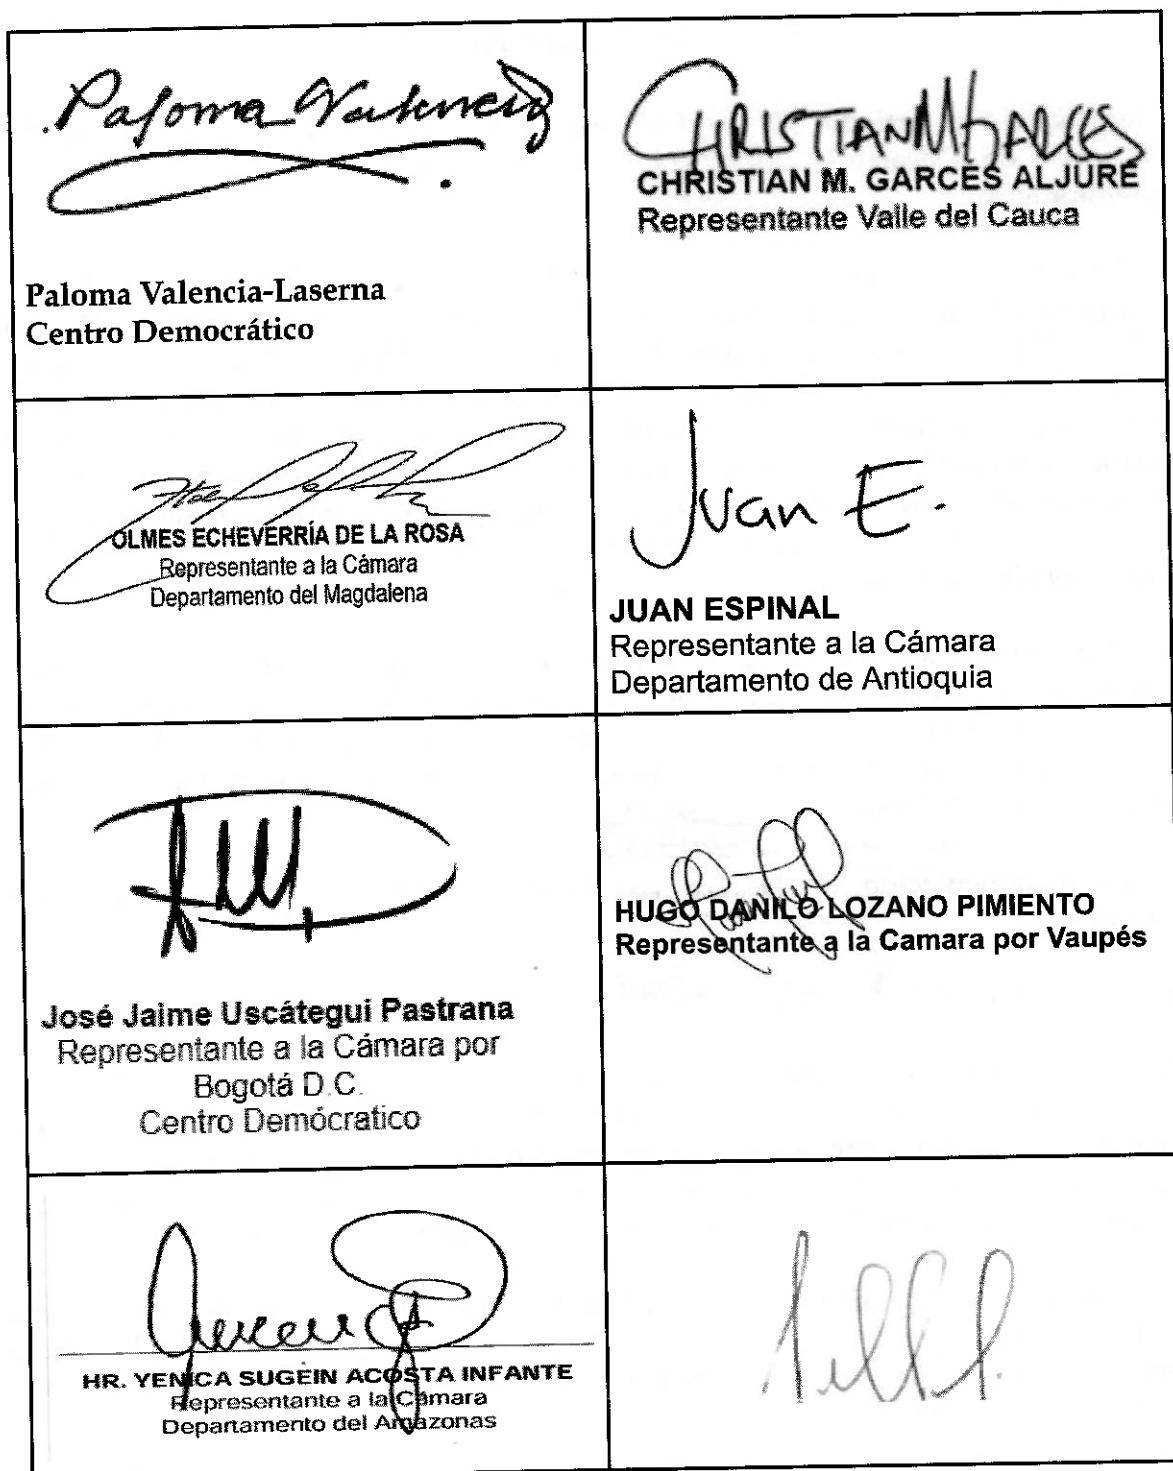 Paloma Valencia
Paloma Valencia-Laserna
Centro Democrático
CHRISTIAN M GARCES
CHRISTIAN M. GARCÉS ALJURE
Representante Valle del Cauca
OLMES ECHEVERRÍA DE LA ROSA
Representante a la Cámara
Departamento del Magdalena
Juan E.
JUAN ESPINAL
Representante a la Cámara
Departamento de Antioquia
José Jaime Uscátegui Pastrana
Representante a la Cámara por
Bogotá D.C.
Centro Demócratico
HUGO DANILO LOZANO PIMIENTO
Representante a la Camara por Vaupés
HR. YENICA SUGEIN ACOSTA INFANTE
Representante a la Cámara
Departamento del Amazonas